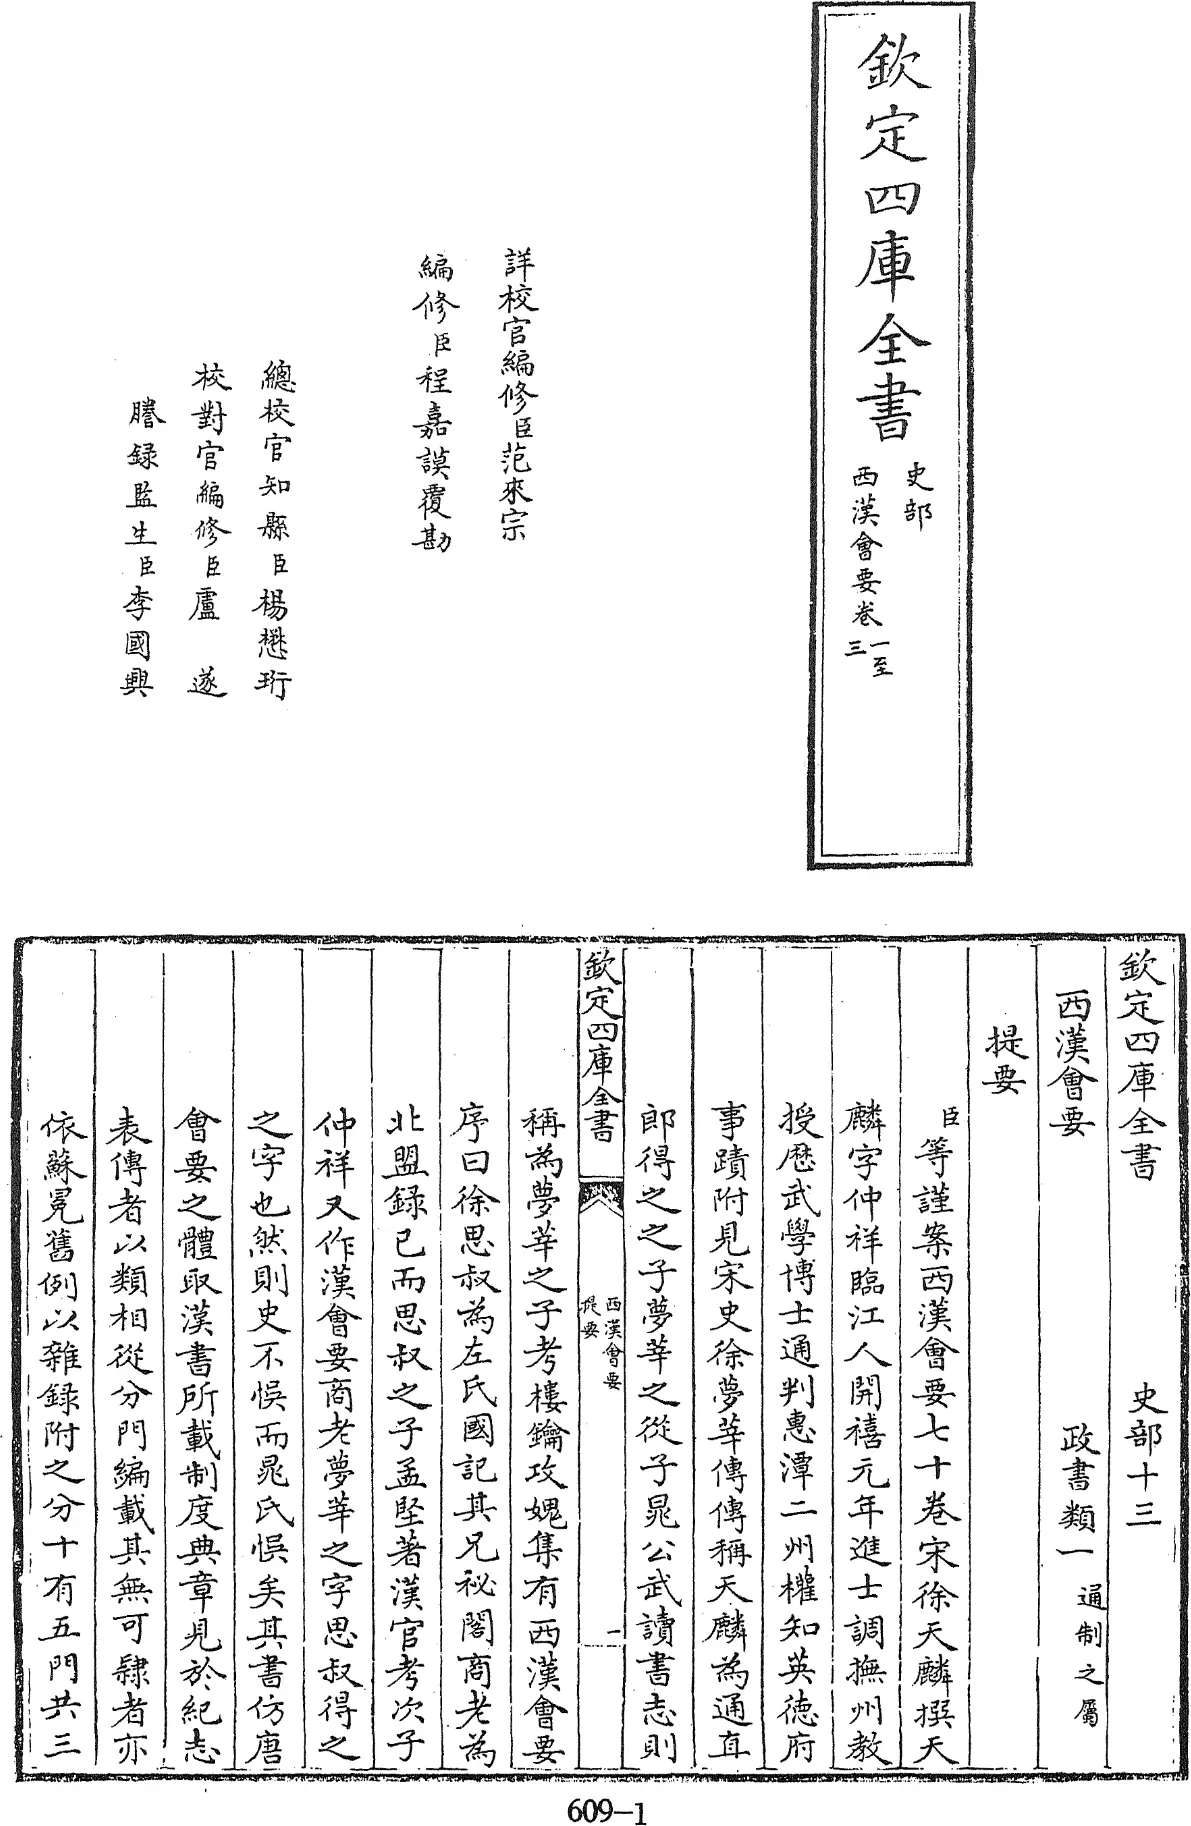 欽定四庫全書
史部
西漢會要卷一至三
詳校官編修臣范來宗
編修臣程嘉謨覆勘
總校官知縣臣楊懋珩
校對官編修臣盧遂
謄録監生臣李國興
欽定四庫全書 史部十三
西漢會要 政書類一 通制之屬
提要
臣等謹案西漢會要七十卷宋徐天麟撰天
麟字仲祥臨江人開禧元年進士調撫州教
授歷武學博士通判惠潭二州權知英德府
事蹟附見宋史徐夢莘傳傳稱天麟為通直
郎得之之子夢莘之從子晁公武讀書志則
欽定四庫全書
西漢會要
提要
一
稱為夢莘之子考樓鑰攻媿集有西漢會要
序曰徐思叔為左氏國記其兄秘閣商老為
北盟録已而思叔之子孟堅著漢官考次子
仲祥又作漢會要商老夢莘之字思叔得之
之字也然則史不悞而晁氏悞矣其書仿唐
會要之體取漢書所載制度典章見於紀志
表傳者以類相從分門編載其無可隸者亦
依蘇冕舊例以雜録附之分十有五門共三
609-1